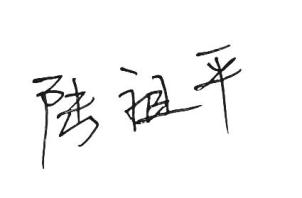 陆祖平